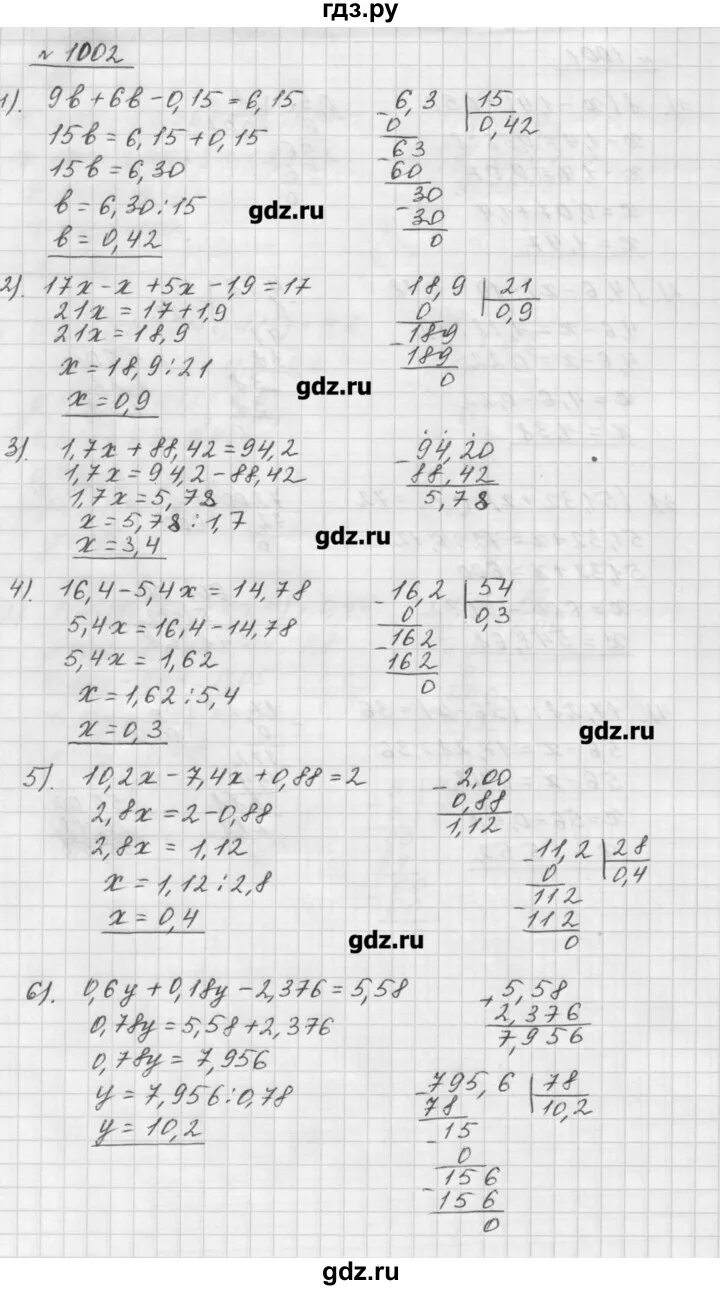 гдз.ру
№ 1002
1). 9в+6в-0,15=6,15
15в=6,15+0,15
15в=6,30
в=6,30:15
в=0,42
6,3 | 15
0 0,42
63
60
30
30
0
gdz.ru
2). 17х-х+5х-1,9=17
21х=17+1,9
21х=18,9
х=18,9:21
х=0,9
18,9 | 21
0 0,9
189
189
0
gdz.ru
3). 1,7х+88,42=94,2
1,7х=94,2-88,42
1,7х=5,78
х=5,78:1,7
х=3,4
- 94,20
88,42
5,78
gdz.ru
4). 16,4-5,4х=14,78
5,4х=16,4-14,78
5,4х=1,62
х=1,62:5,4
х=0,3
16,2 | 54
0 0,3
162
162
0
gdz.ru
5). 10,2х-7,4х+0,88=2
2,8х=2-0,88
2,8х=1,12
х=1,12:2,8
х=0,4
- 2,00
0,88
1,12
11,2 | 28
0 0,4
112
112
0
gdz.ru
6). 0,6у+0,18у-2,376=5,58
0,78у=5,58+2,376
0,78у=7,956
у=7,956:0,78
у=10,2
+ 5,58
2,376
7,956
795,6 | 78
78 10,2
15
0
156
156
0
gdz.ru
gdz.ru